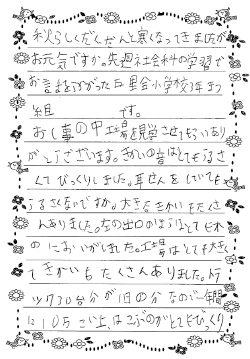 秋らしくだんだん寒くなってきましたが
お元気ですか。先週社会科の学習で
お世話になった 里会小学校3年
組　　　です。
おし事の中工場を見学させてもらいあり
がとうございます。きかいの音はとてもうるさ
くてびっくりしました。耳せんを しても
うるさくなのですか。大きなきかいもたくさ
んありました。左の出口のほうはとても
のにおいがしました。工場はとても大きく
てきかいもたくさんありました。
ック730台分が1日の分なので一間
に105 はこぶのがとてもびっくり